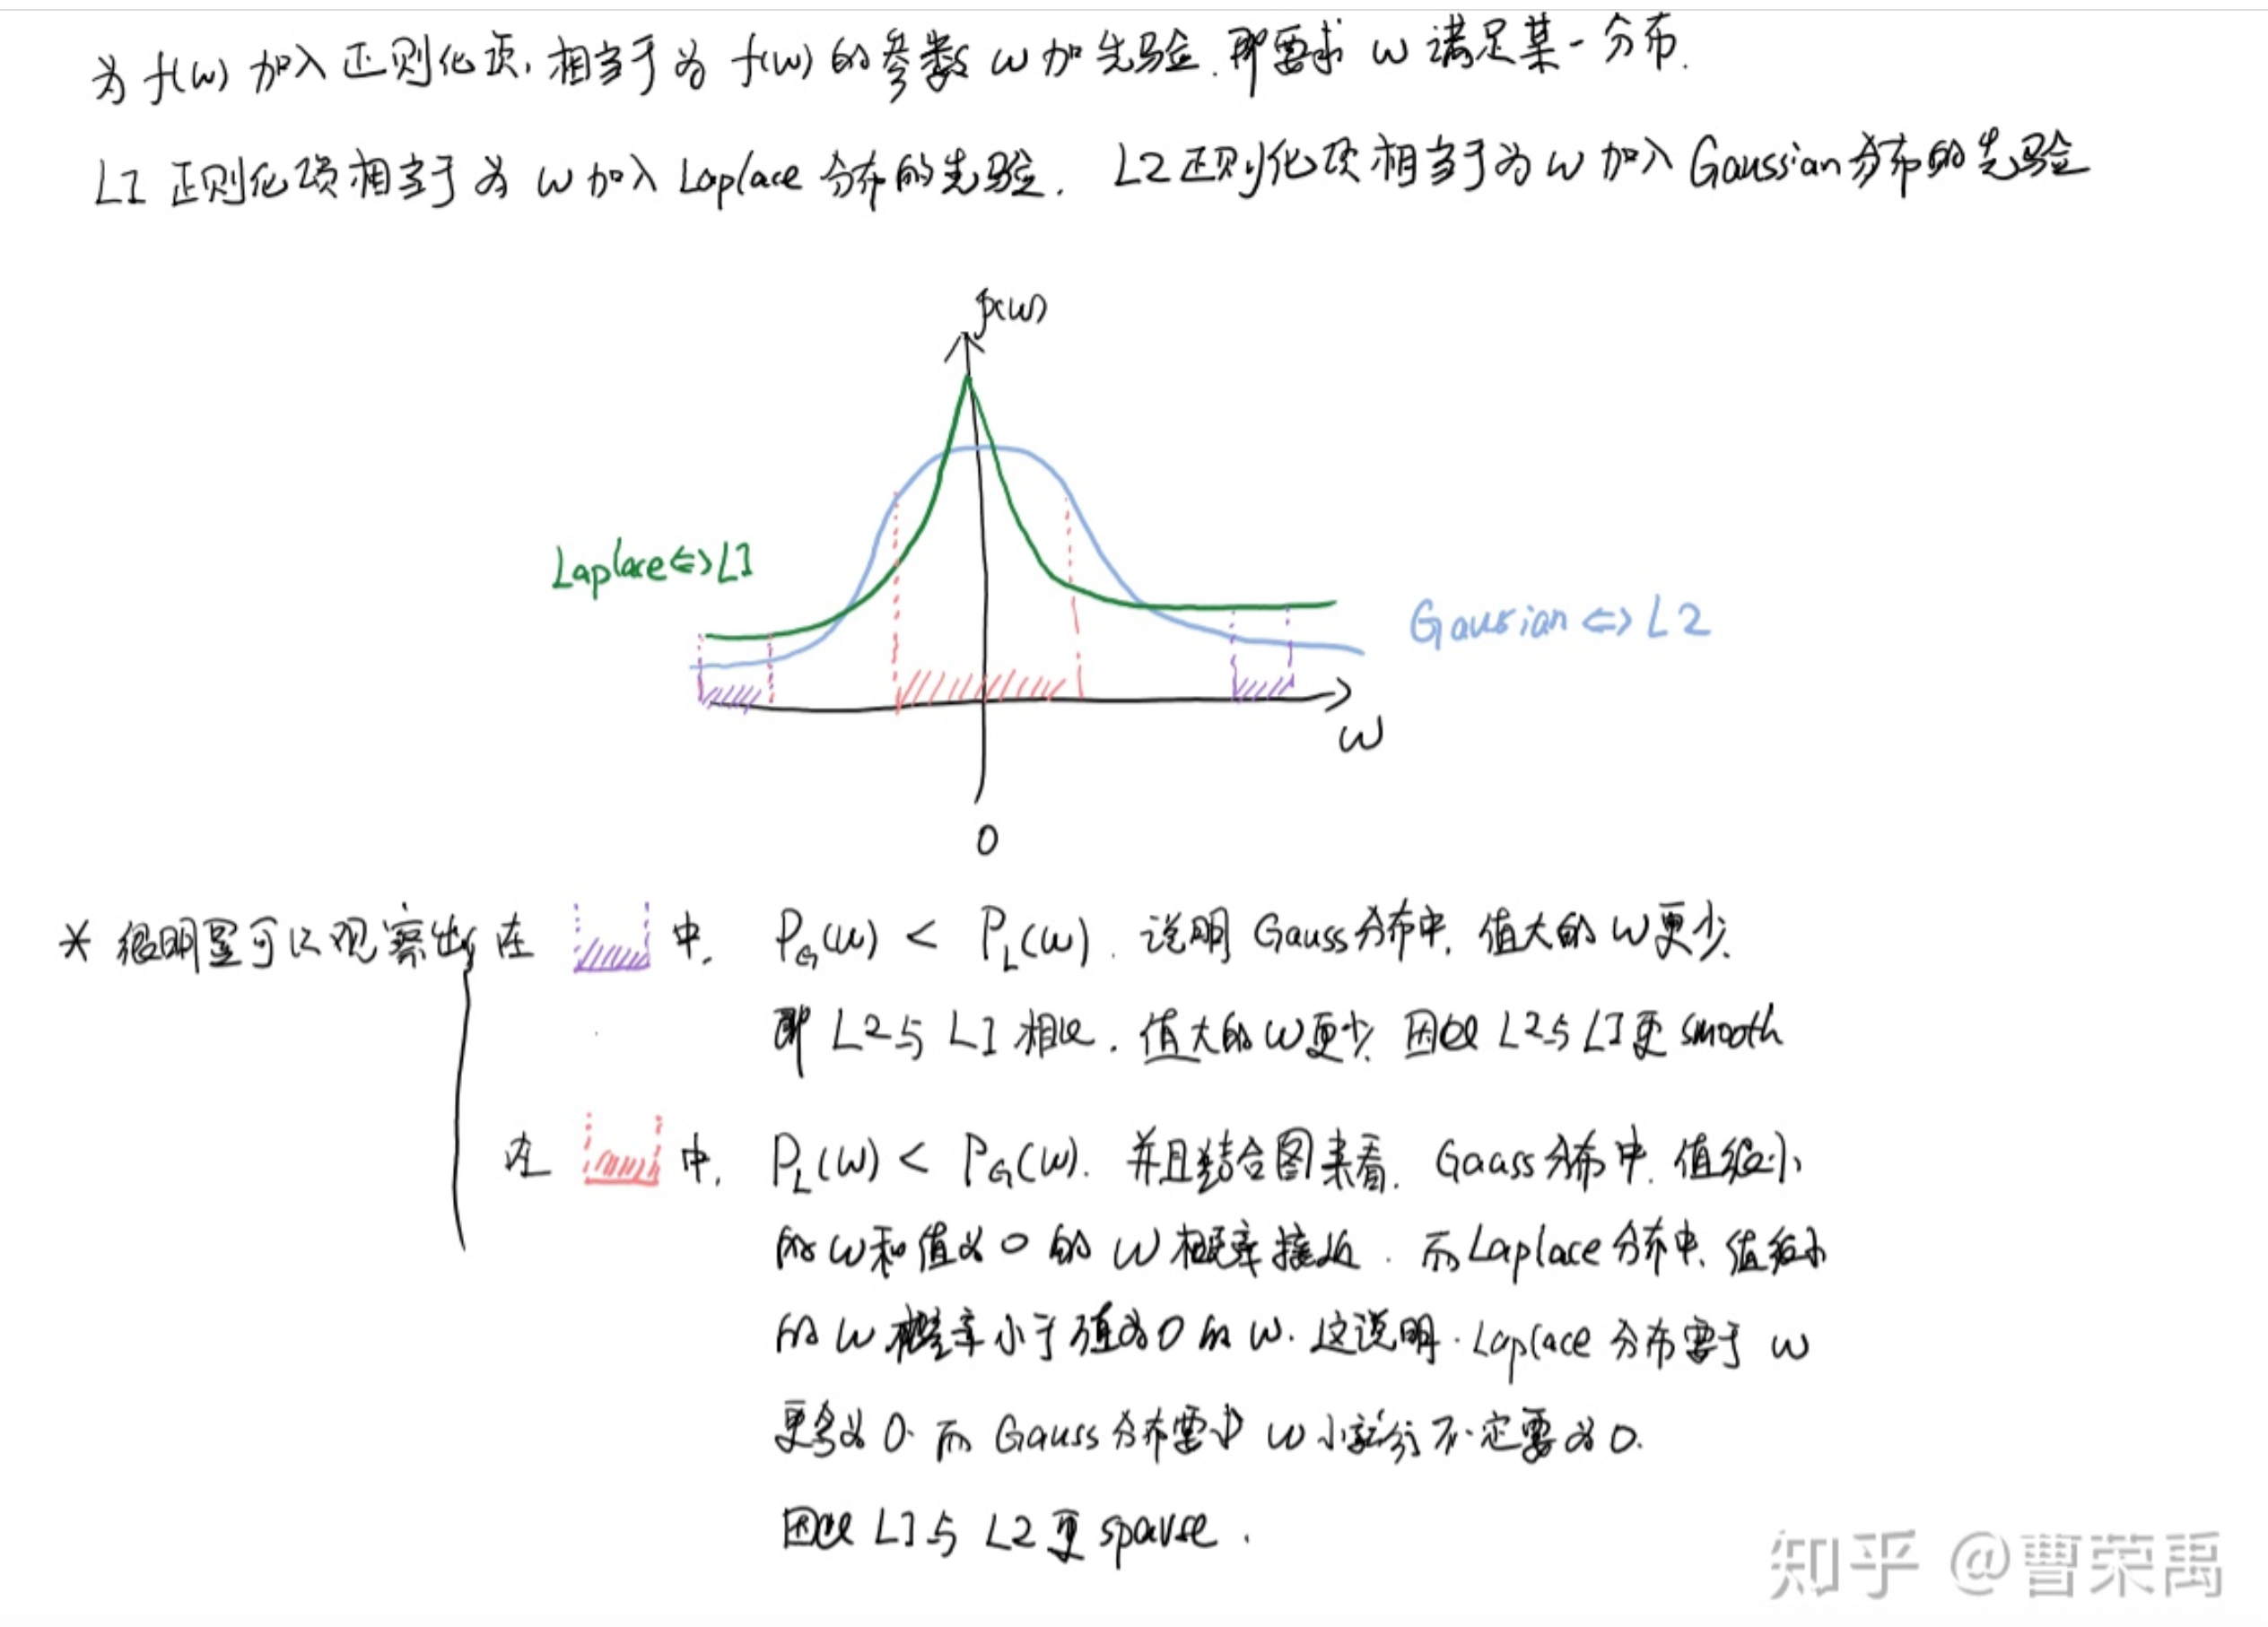 为 f(w) 加入正则化项, 相当于为 f(w) 的参数 w 加先验. 即要求 w 满足某一分布.
L1 正则化项相当于为 w 加入 Laplace 分布的先验. L2 正则化项相当于为 w 加入 Gaussian 分布的先验
p(w)
Laplace⇔L1
Gaussian ⇔ L2
w
0
* 很明显可以观察出 在 中, P_G(w) < P_L(w). 说明 Gauss 分布中, 值大的 w 更少.
即 L2与 L1 相比, 值大的 w 更少. 因此 L2与 L1更 smooth
在 中, P_L(w) < P_G(w). 并且结合图来看, Gaass 分布中, 值很小
的 w 和值为 0 的 w 概率接近. 而 Laplace 分布中, 值很小
的 w 概率小于值为0的 w. 这说明. Laplace 分布要于 w
更多为 0. 而 Gauss 分布要求 w 小就行不一定要为 0.
因此 L1与 L2 更 sparse.
知乎 @曹荣禹